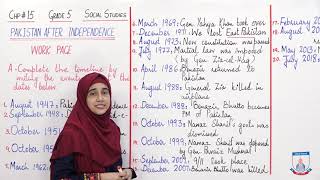 CH#15 GRADE 5 SOCIAL STUDIES
PAKISTAN AFTER INDEPENDENCE
WORK PAGE
A-Complete the timeline by
writing the event
dates below
1. August 1947:
2. September 1948:
3. October 1951
4. October 195
5. March 1962
6. March 1969: Gen. Yahya Khan took over
7. December 1971: We lost East Pakistan
8. August 1973: New constitution was passed
9. July 1977: Martial law was imposed
(by Gen. Zia-ul-Haq)
10. April 1986: Benazir returned to
Pakistan
11. August 1988: General Zia killed in
12. December 1988: Benazir Bhutto becomes
PM of Pakistan
13. October 1993: Nawaz Sharif's govt was
dismissed
14. October 1999: Nawaz Sharif was deposed
by Gen. Parvez Musharraf
15. September 2001: 9/11 took place
16. December 2007: Benazir Bhutto was killed
17. February 20
18. August 20
19. May 2013: N
20. July 2018: